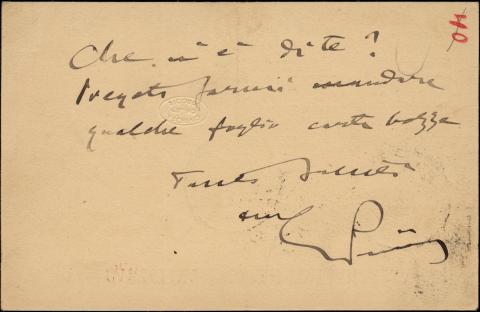 Che n'è di te?
Pregoti farmi mandare
qualche foglio carta bozze
Tanti saluti
40